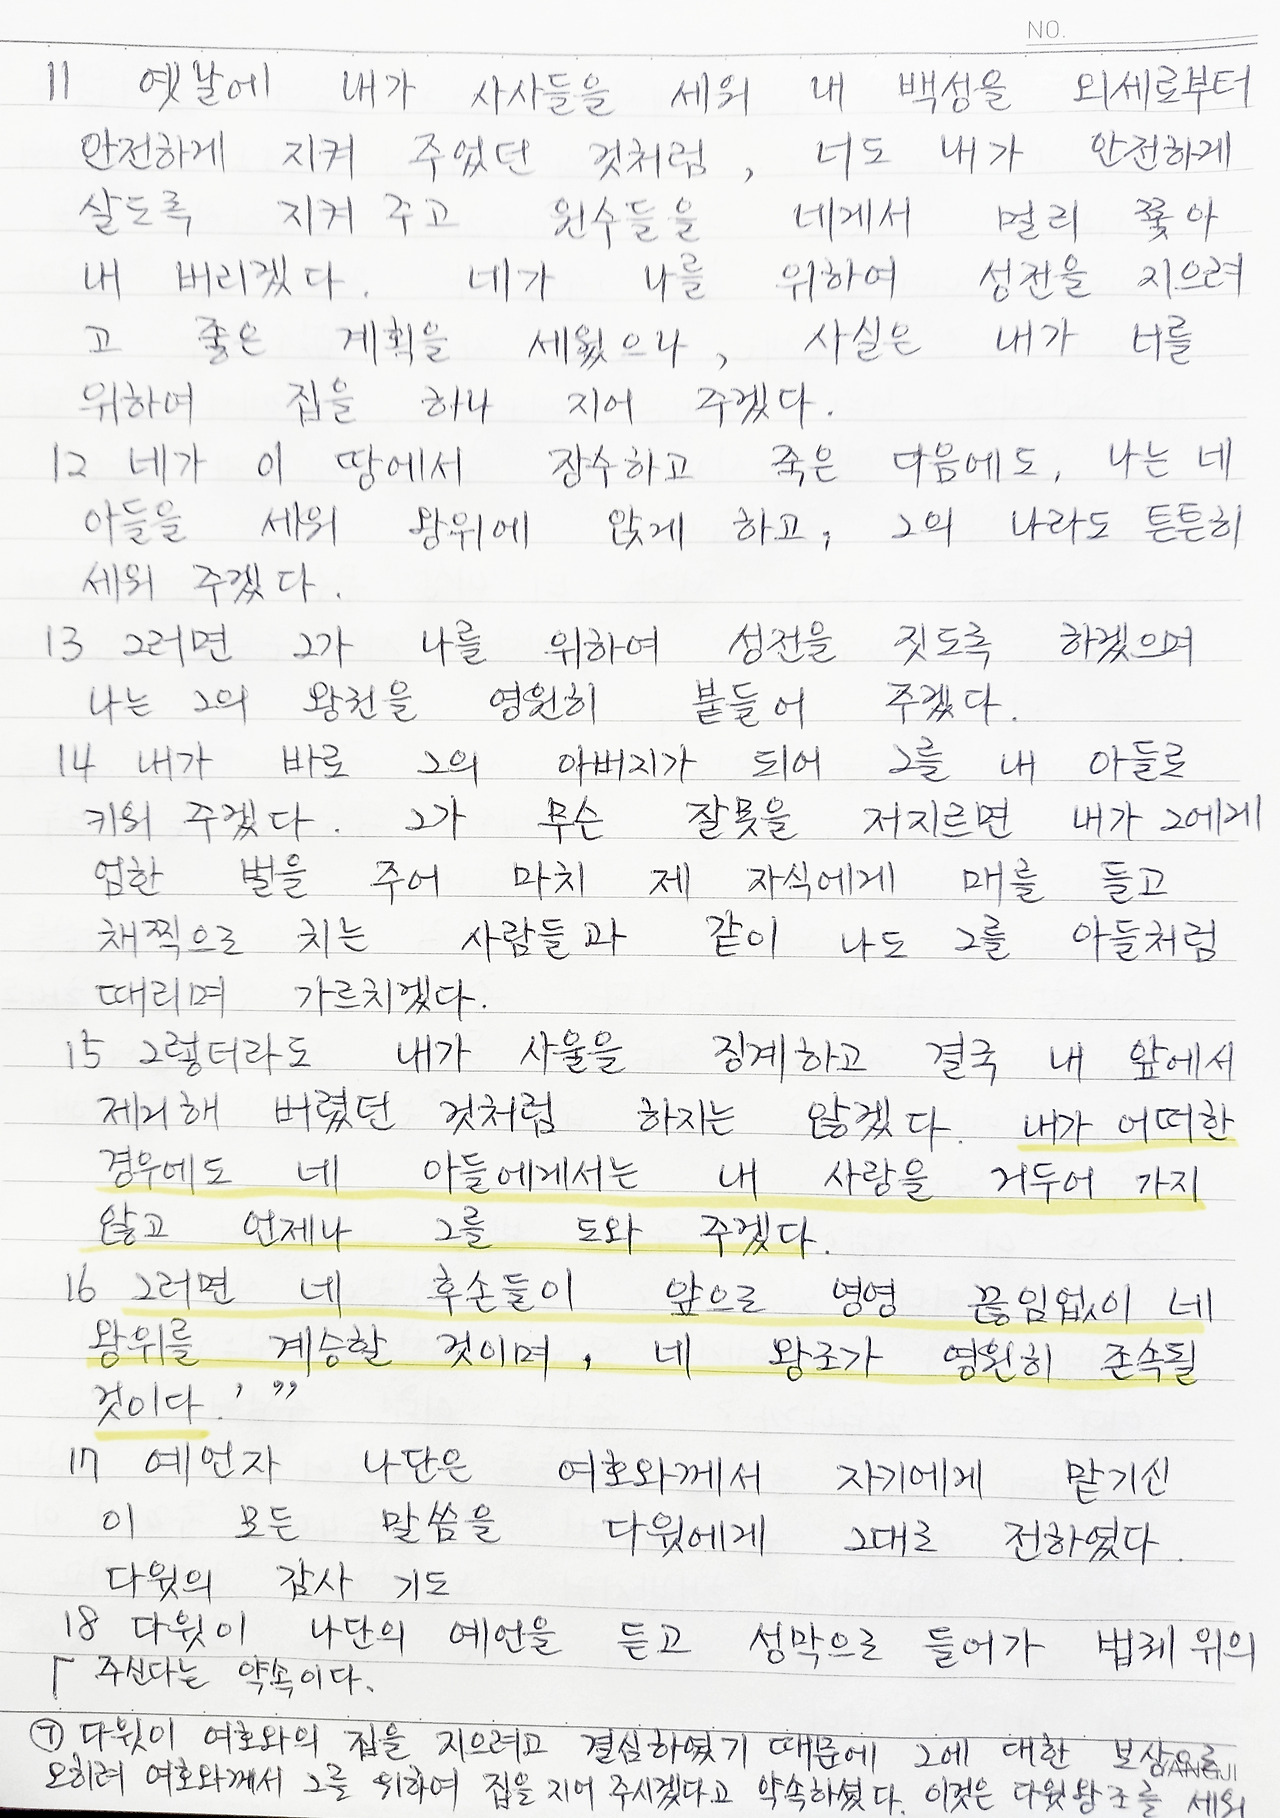 NO.
11 옛날에 내가 사사들을 세워 내 백성을 외세로부터
안전하게 지켜 주었던 것처럼, 너도 내가 안전하게
살도록 지켜 주고 원수들을 네게서 멀리 쫓아
내 버리겠다. 네가 나를 위하여 성전을 지으려
고 좋은 계획을 세웠으나, 사실은 내가 너를
위하여 집을 하나 지어 주겠다.
12 네가 이 땅에서 장수하고 죽은 다음에도, 나는 네
아들을 세워 왕위에 앉게 하고, 그의 나라도 튼튼히
세워 주겠다.
13 그러면 그가 나를 위하여 성전을 짓도록 하겠으며
나는 그의 왕권을 영원히 붙들어 주겠다.
14 내가 바로 그의 아버지가 되어 그를 내 아들로
키워 주겠다. 그가 무슨 잘못을 저지르면 내가 그에게
엄한 벌을 주어 마치 제 자식에게 매를 들고
채찍으로 치는 사람들과 같이 나도 그를 아들처럼
때리며 가르치겠다.
15 그렇더라도 내가 사울을 징계하고 결국 내 앞에서
제거해 버렸던 것처럼 하지는 않겠다. 내가 어떠한
경우에도 네 아들에게서는 내 사랑을 거두어 가지
않고 언제나 그를 도와 주겠다.
16 그러면 네 후손들이 앞으로 영영 끊임없이 네
왕위를 계승할 것이며, 네 왕조가 영원히 존속될
것이다.’”
17 예언자 나단은 여호와께서 자기에게 맡기신
이 모든 말씀을 다윗에게 그대로 전하였다.
다윗의 감사 기도
18 다윗이 나단의 예언을 듣고 성막으로 들어가 법궤 위의
┌ 주신다는 약속이다.
㉠ 다윗이 여호와의 집을 지으려고 결심하였기 때문에 그에 대한 보상으로
YANGJI
오히려 여호와께서 그를 위하여 집을 지어 주시겠다고 약속하셨다. 이것은 다윗왕조를 세워